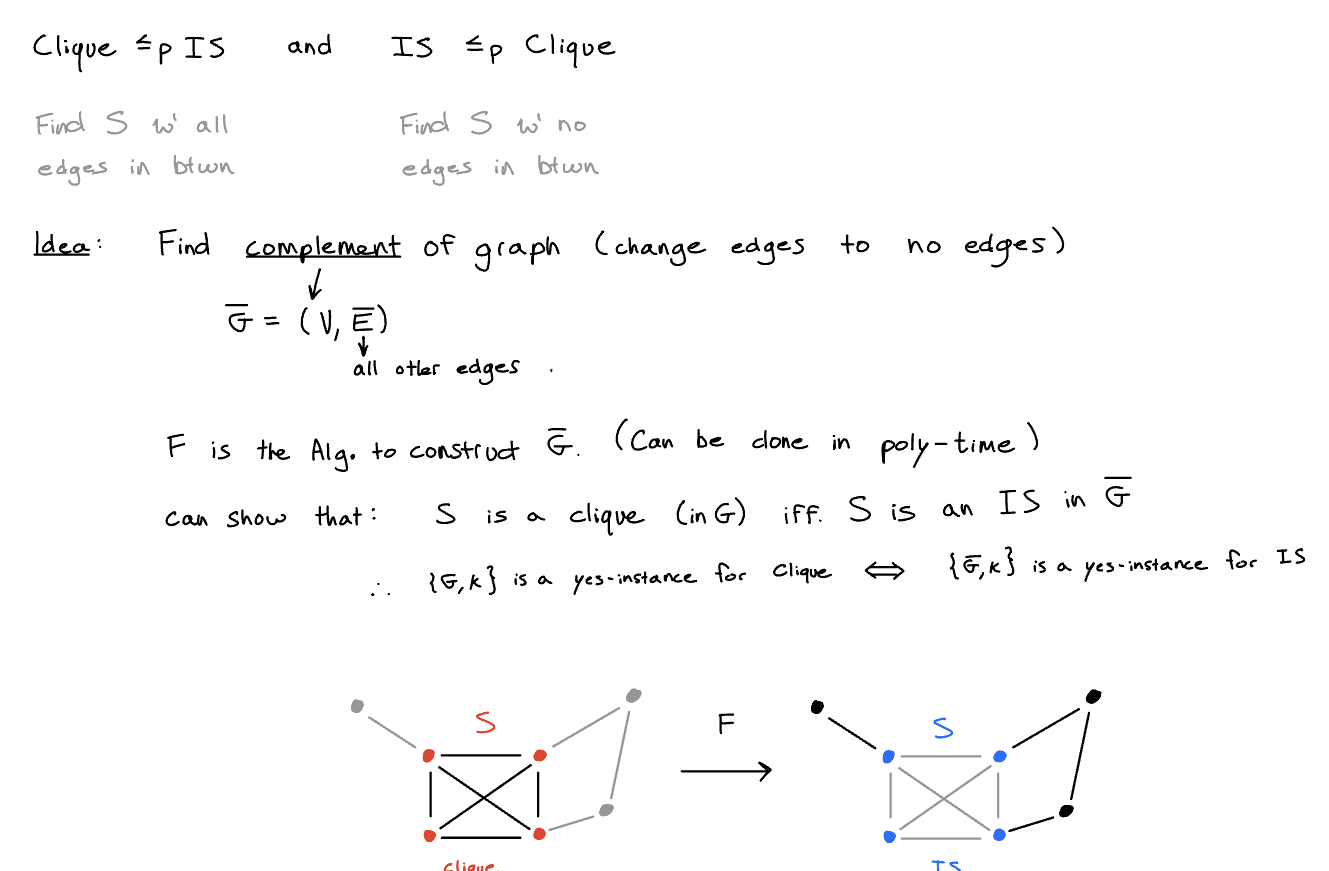 Clique ≤p IS and IS ≤p Clique
Find S w' all Find S w' no
edges in btwn edges in btwn
Idea: Find complement of graph (change edges to no edges)
G̅ = (V, E̅)
all other edges .
F is the Alg. to construct G̅. (Can be done in poly-time)
can show that: S is a clique (in G) iff. S is an IS in G̅
∴ {G,k} is a yes-instance for Clique ⟺ {G̅,k} is a yes-instance for IS
S F S
clique IS